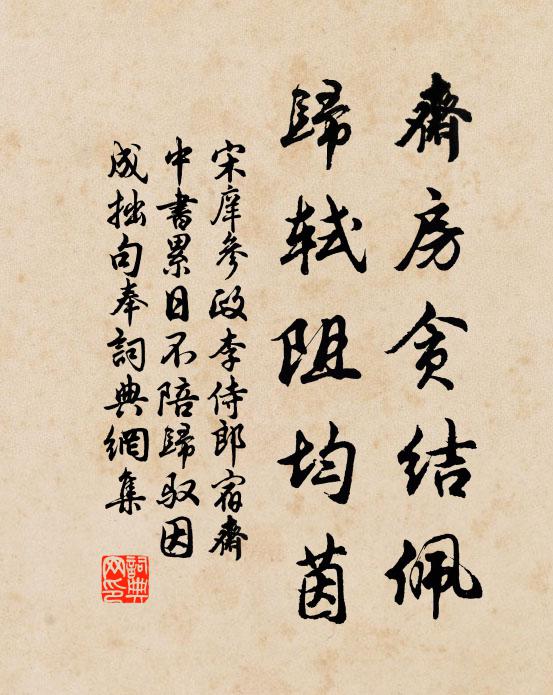 齋房貪結佩
歸軾阻均茵
宋庠參政李侍郎宿齋
中書累日不陪歸馭因
成拙句奉詞典網集
詞典网印